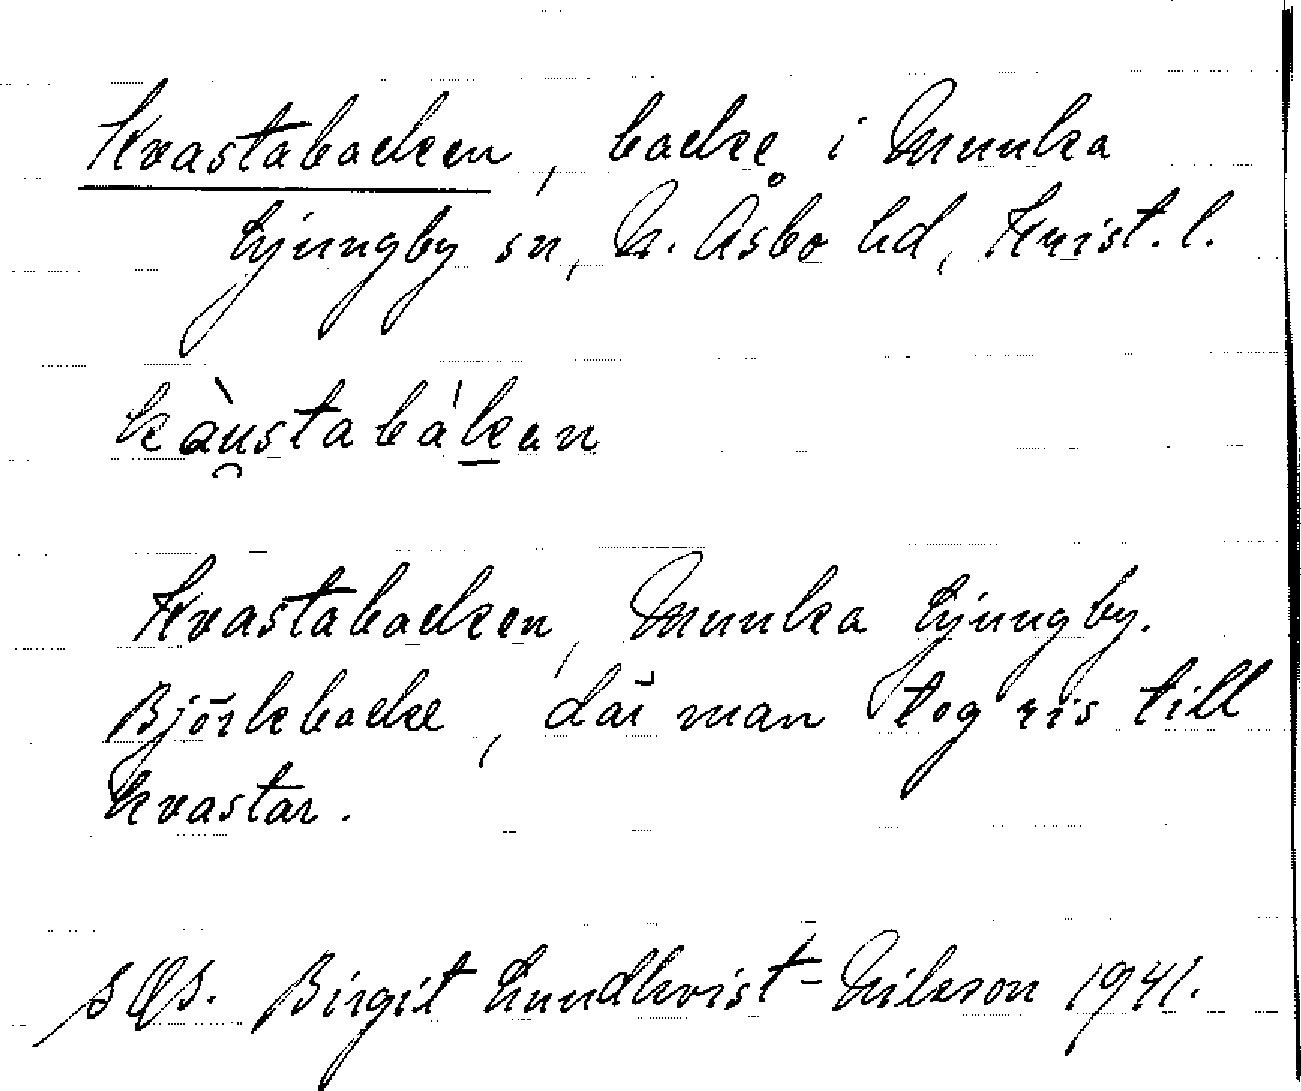 Kvastabacken, backe i Munka
Ljungby sn, N. Åsbo hd, Krist. l.
kàu̯stabák̲an
Kvastabacken, Munka Ljungby.
Björkbacke, där man tog ris till
kvastar.
SOS. Birgit Lundkvist-Nilsson 1941.